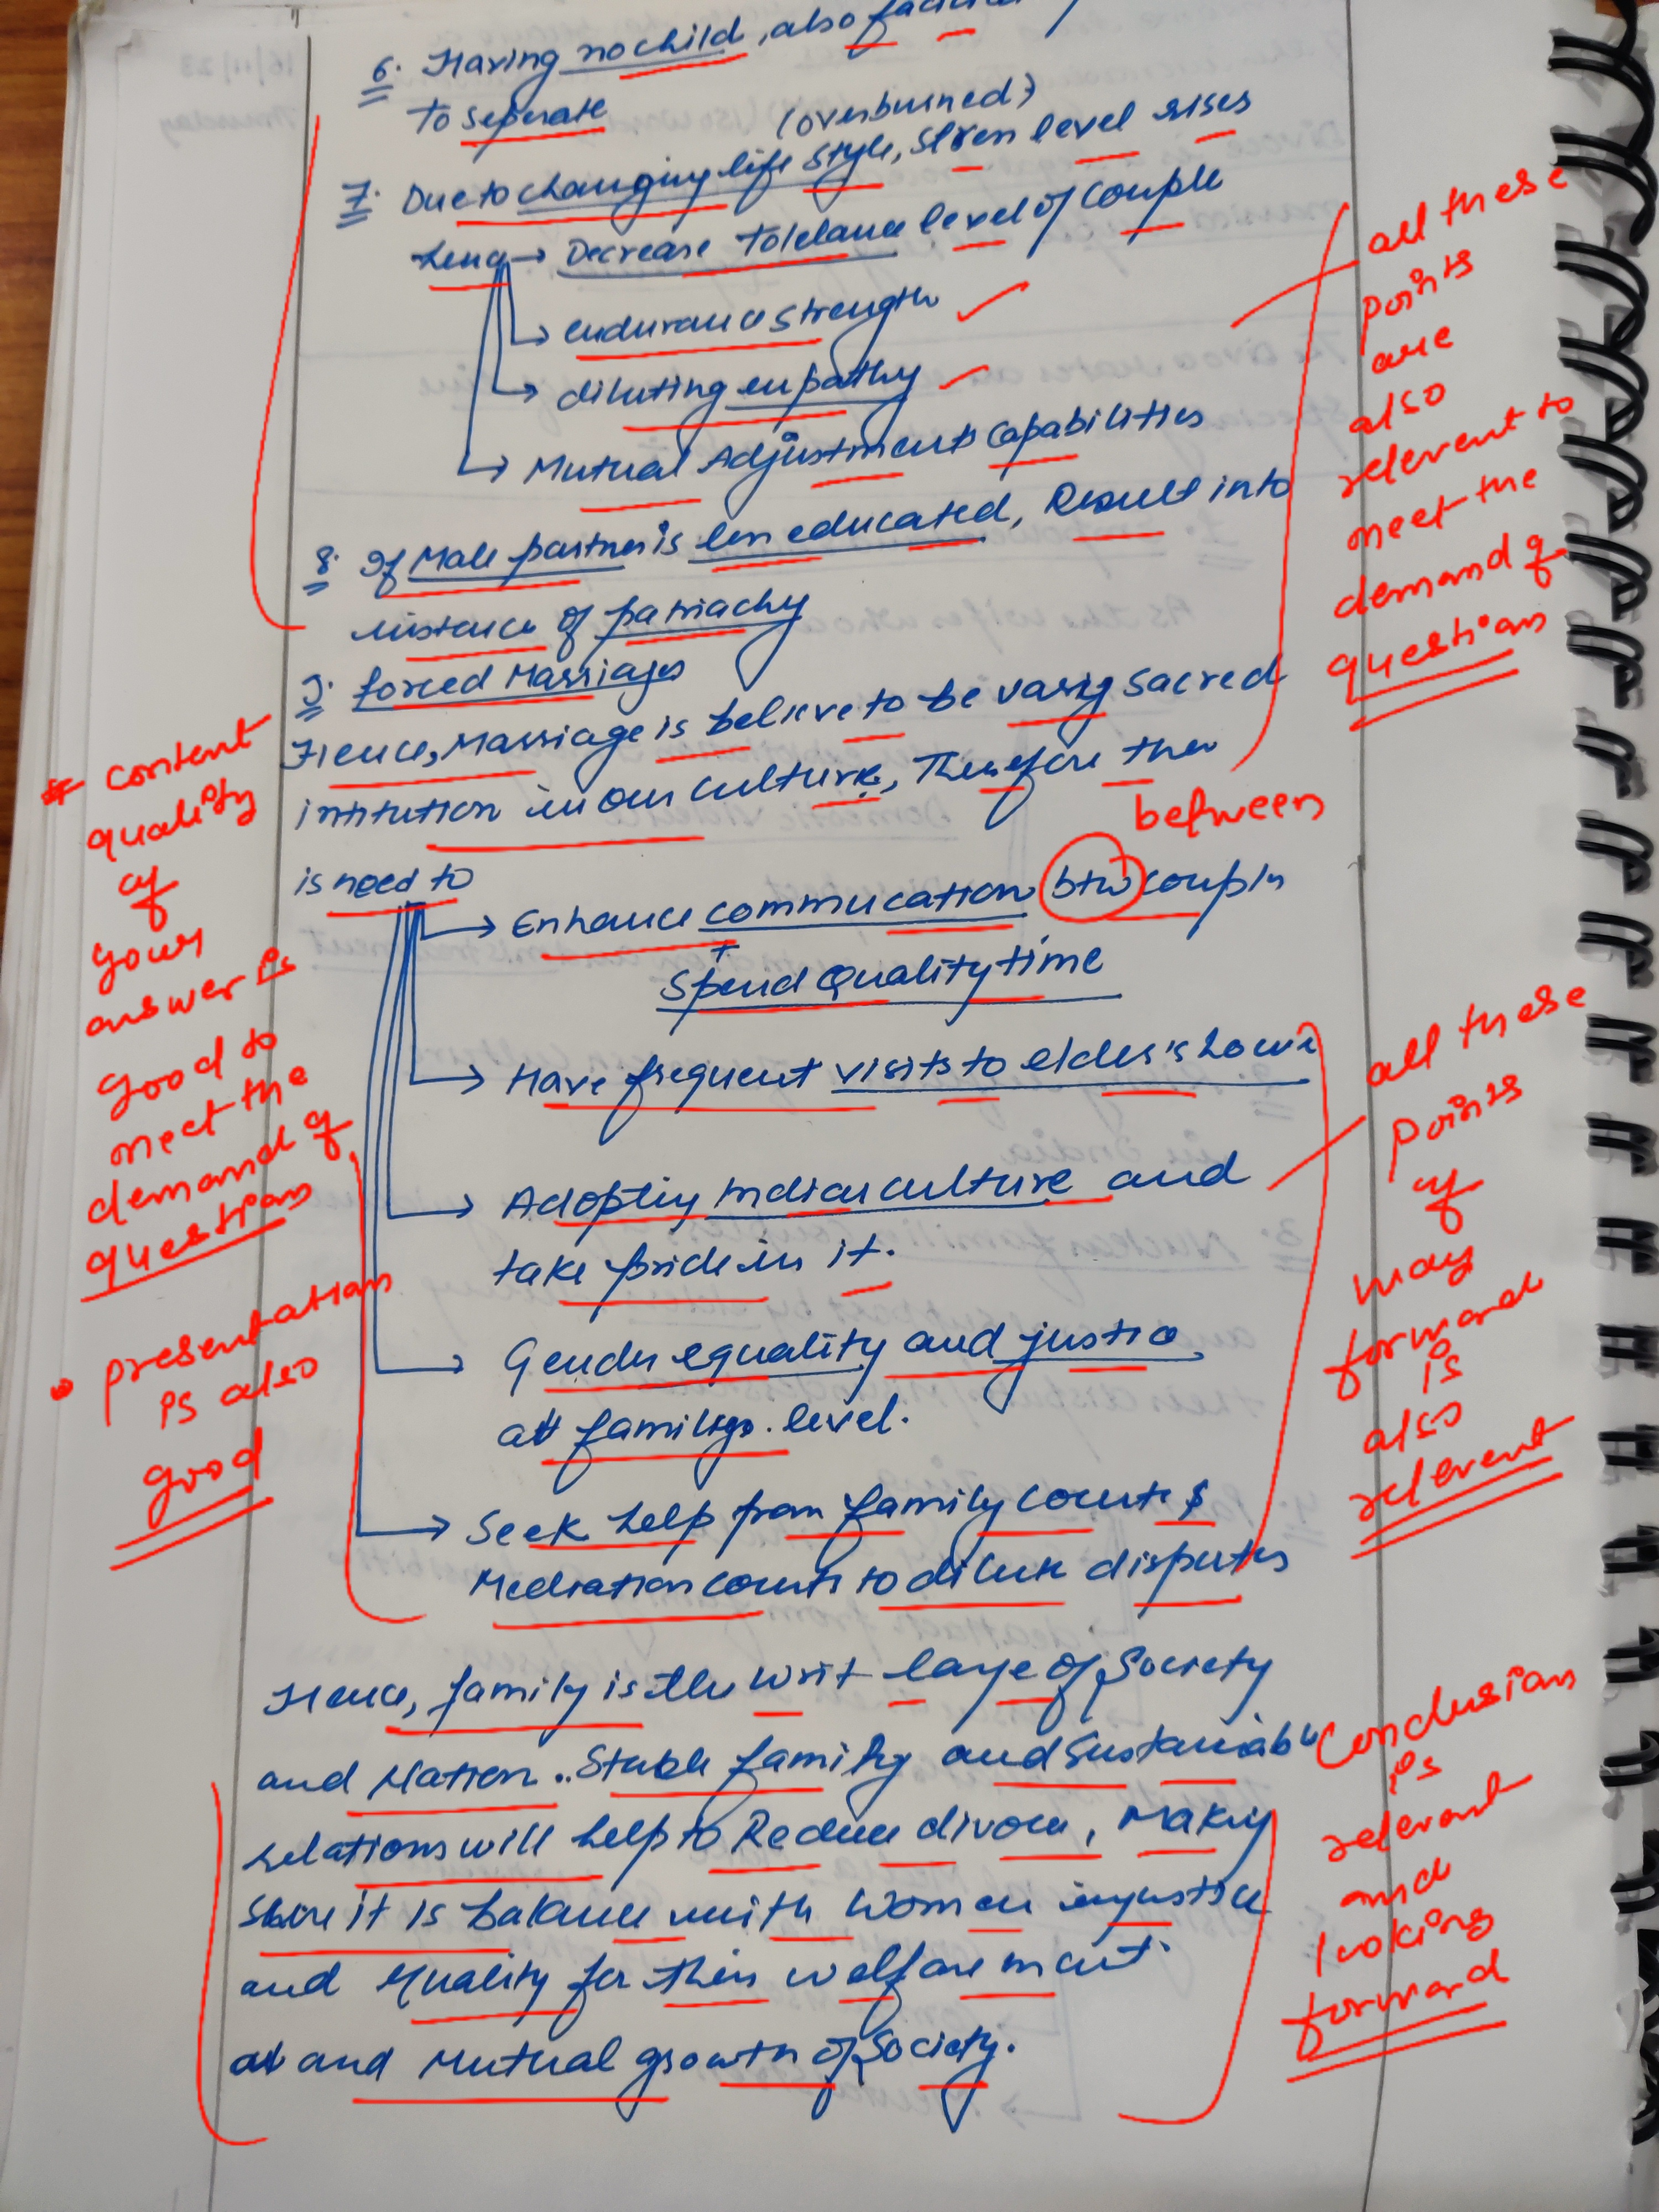 6. Having no child, also
to separate
(overburned)
7. Due to changing life style, stress level rises
Decrease Tolelance level of couple
endurance strength
diluting empathy
Mutual Adjustments capabilities
8. If Male partner is less educated, Result into
instance of patriachy
9. forced Marriages
Hence, Marriage is believe to be sacred
intitution in our culture, Therefore ther
is need to
between
Enhance commucation btw couples
+
Spend Quality time
Have frequent visits to elders's
Adopting Indian culture and
take pride in it.
Gender equality and justice
at family level.
Seek help from family courts &
Mediation courts to dilute disputes
Hence, family is the writ large of Society
and Nation.. Stable family and sustainable
relations will help to Reduce divorce, Making
sure it is balance with women injustice
and equality for their welfare
and Mutual growth of Society.
all these
points
are
also
relevent to
meet the
demand of
question
* content
quality
of
your
answer is
good to
meet the
demand of
question
• presentation
is also
good
all these
points
of
way
forward
is
also
relevent
Conclusion
is
relevant
and
looking
forward